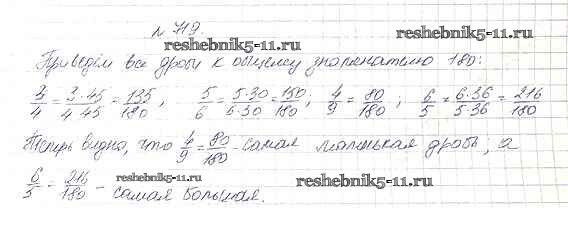 № 719.
reshebnik5-11.ru reshebnik5-11.ru
Приведём все дроби к общему знаменателю 180:
3/4 = 3·45/4·45 = 135/180, 5/6 = 5·30/6·30 = 150/180; 4/9 = 80/180; 6/5 = 6·36/5·36 = 216/180
Теперь видно, что 4/9 = 80/180 - самая маленькая дробь, а
6/5 = 216/180 - самая большая.
reshebnik5-11.ru reshebnik5-11.ru